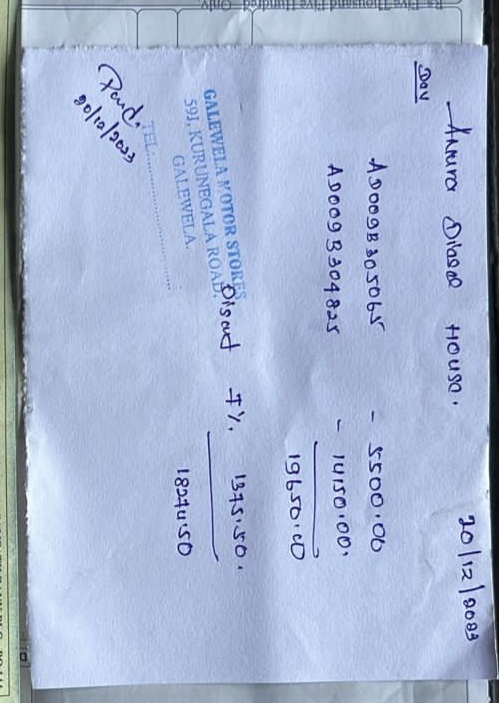 Rs. Five Thousand Five Hundred Only.
20/12/2023
Anura Diesel House.
Dav
AD009B305065 - 5500.00
AD009B304825 - 14150.00.
19650.00
Disout 7% 1375.50.
18274.50
GALEWELA MOTOR STORES
59J, KURUNEGALA ROAD,
GALEWELA.
TEL:
Paid.
20/12/2023